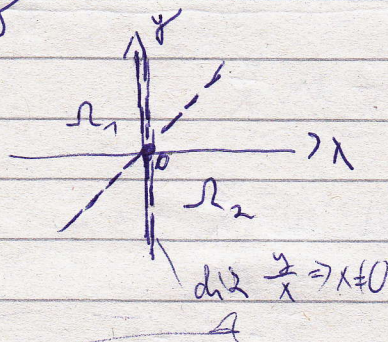 y
Ω₁
0
x
Ω₂
díž y/x ⇒ x≠0